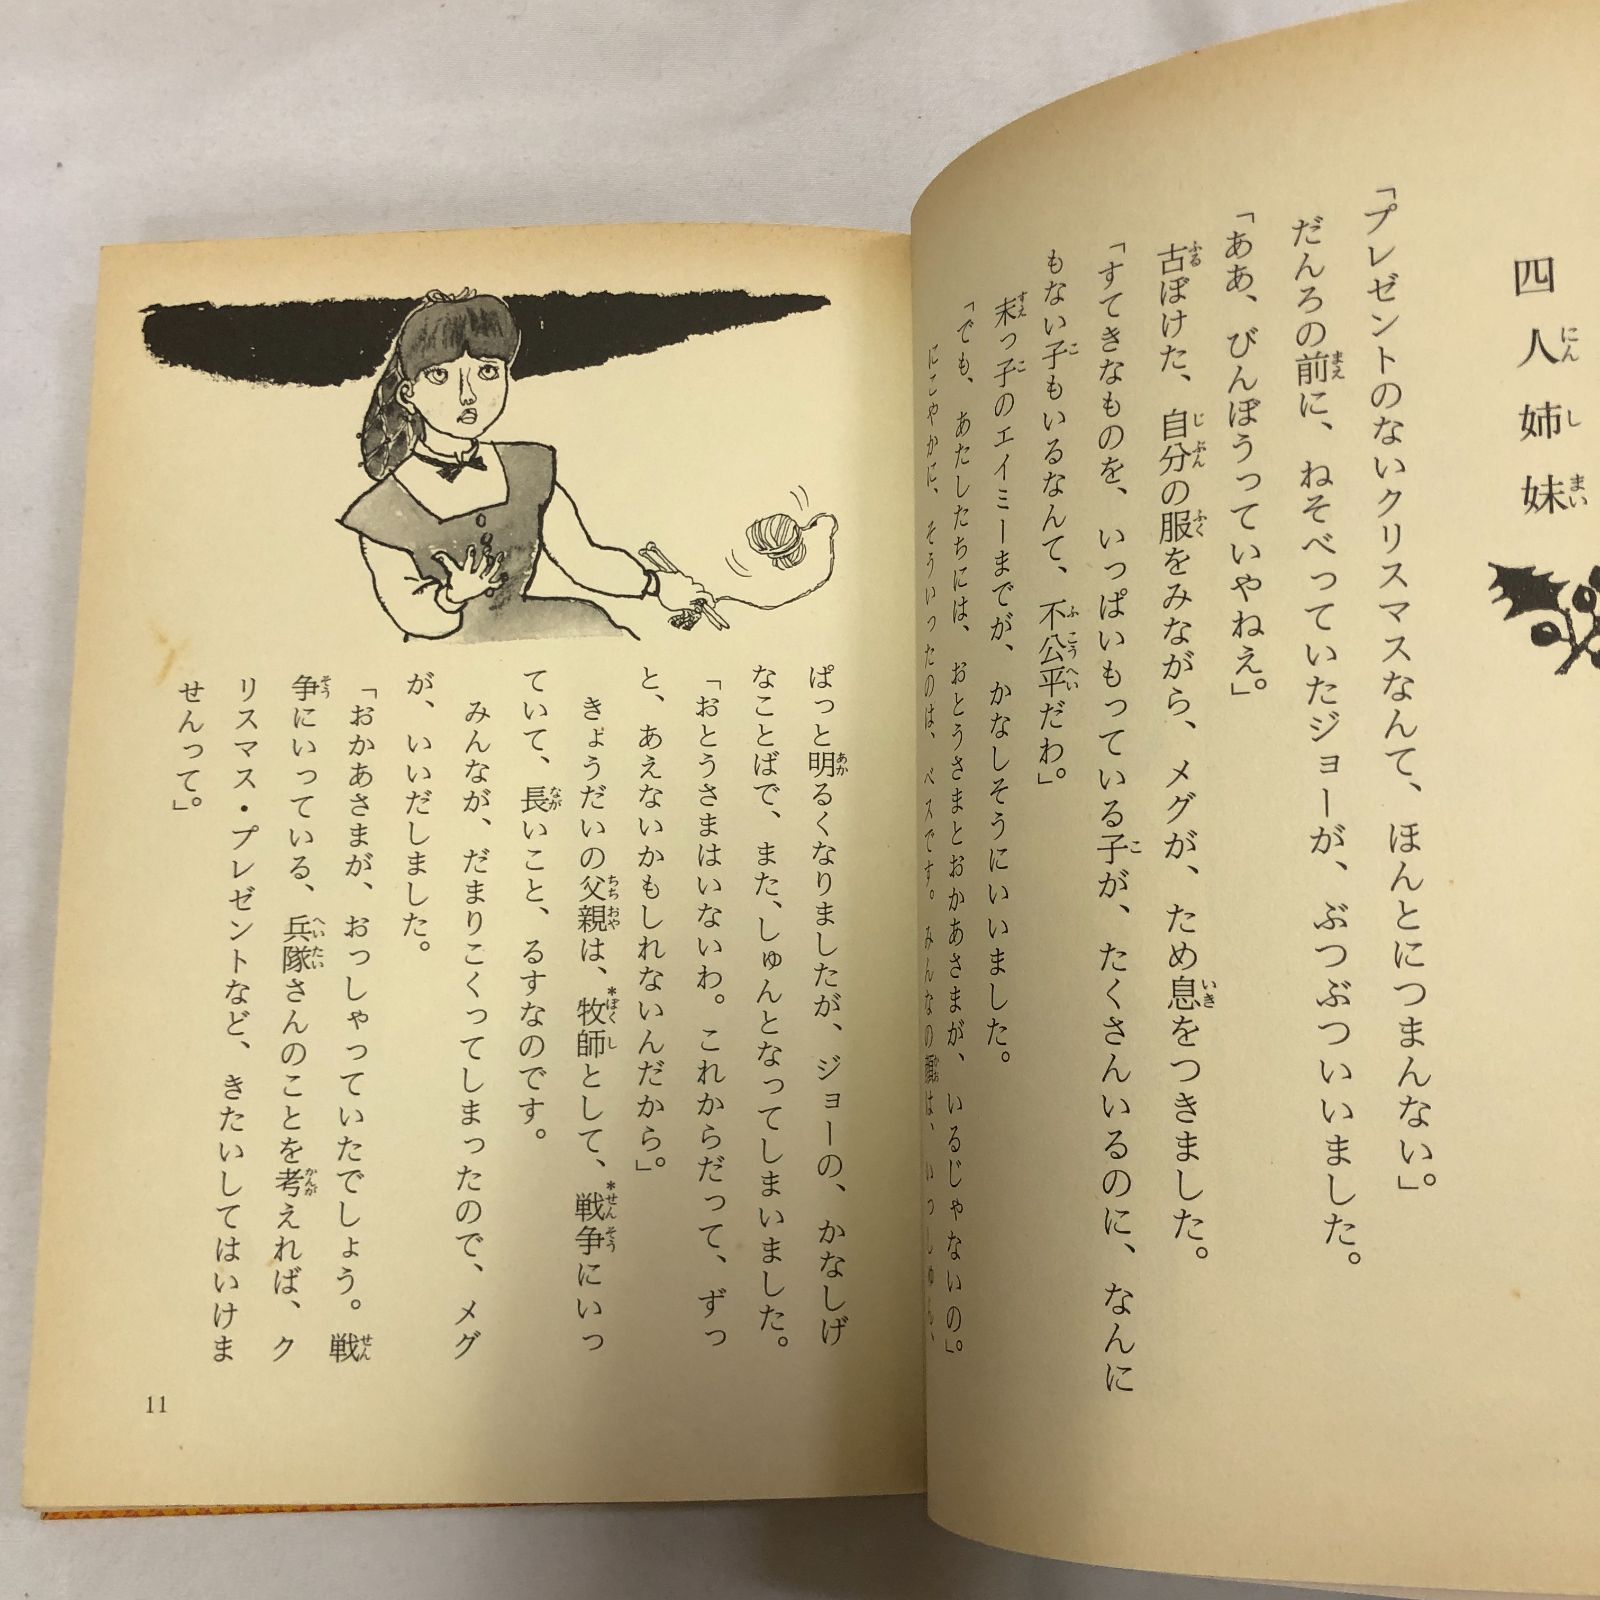 四人姉妹
にんしまい
「プレゼントのないクリスマスなんて、ほんとにつまんない」。
だんろの前に、ねそべっていたジョーが、ぶつぶついいました。
「ああ、びんぼうっていやねえ」。
古ぼけた、自分の服をみながら、メグが、ため息をつきました。
「すてきなものを、いっぱいもっている子が、たくさんいるのに、なんに
もない子もいるなんて、不公平だわ」。
末っ子のエイミーまでが、かなしそうにいいました。
「でも、あたしたちには、おとうさまとおかあさまが、いるじゃないの」。
にこやかに、そういったのは、ベスです。みんなの顔は、いっしゅん、
ぱっと明るくなりましたが、ジョーの、かなしげ
なことばで、また、しゅんとなってしまいました。
「おとうさまはいないわ。これからだって、ずっ
と、あえないかもしれないんだから」。
きょうだいの父親は、*牧師として、*戦争にいっ
ていて、長いこと、るすなのです。
みんなが、だまりこくってしまったので、メグ
が、いいだしました。
「おかあさまが、おっしゃっていたでしょう。戦
争にいっている、兵隊さんのことを考えれば、ク
リスマス・プレゼントなど、きたいしてはいけま
せんって」。
11